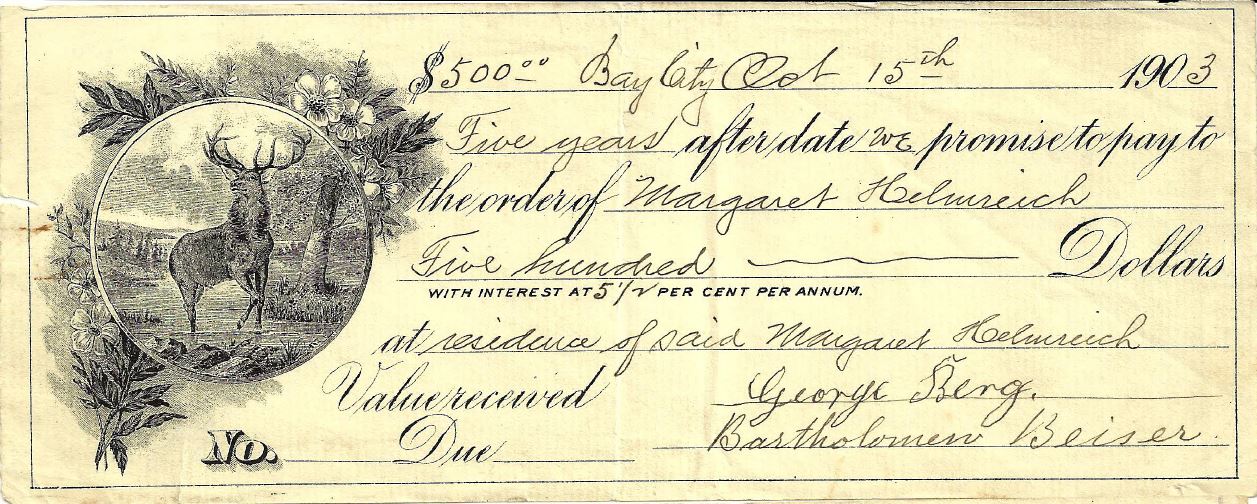 $500.00 Bay City Oct 15th 1903
Five years after date we promise to pay to
the order of Margaret Helmreich
Five hundred Dollars
WITH INTEREST AT 5 1/2 PER CENT PER ANNUM.
at residence of said Margaret Helmreich
Value received George Berg.
No. Due Bartholomew Beiser.